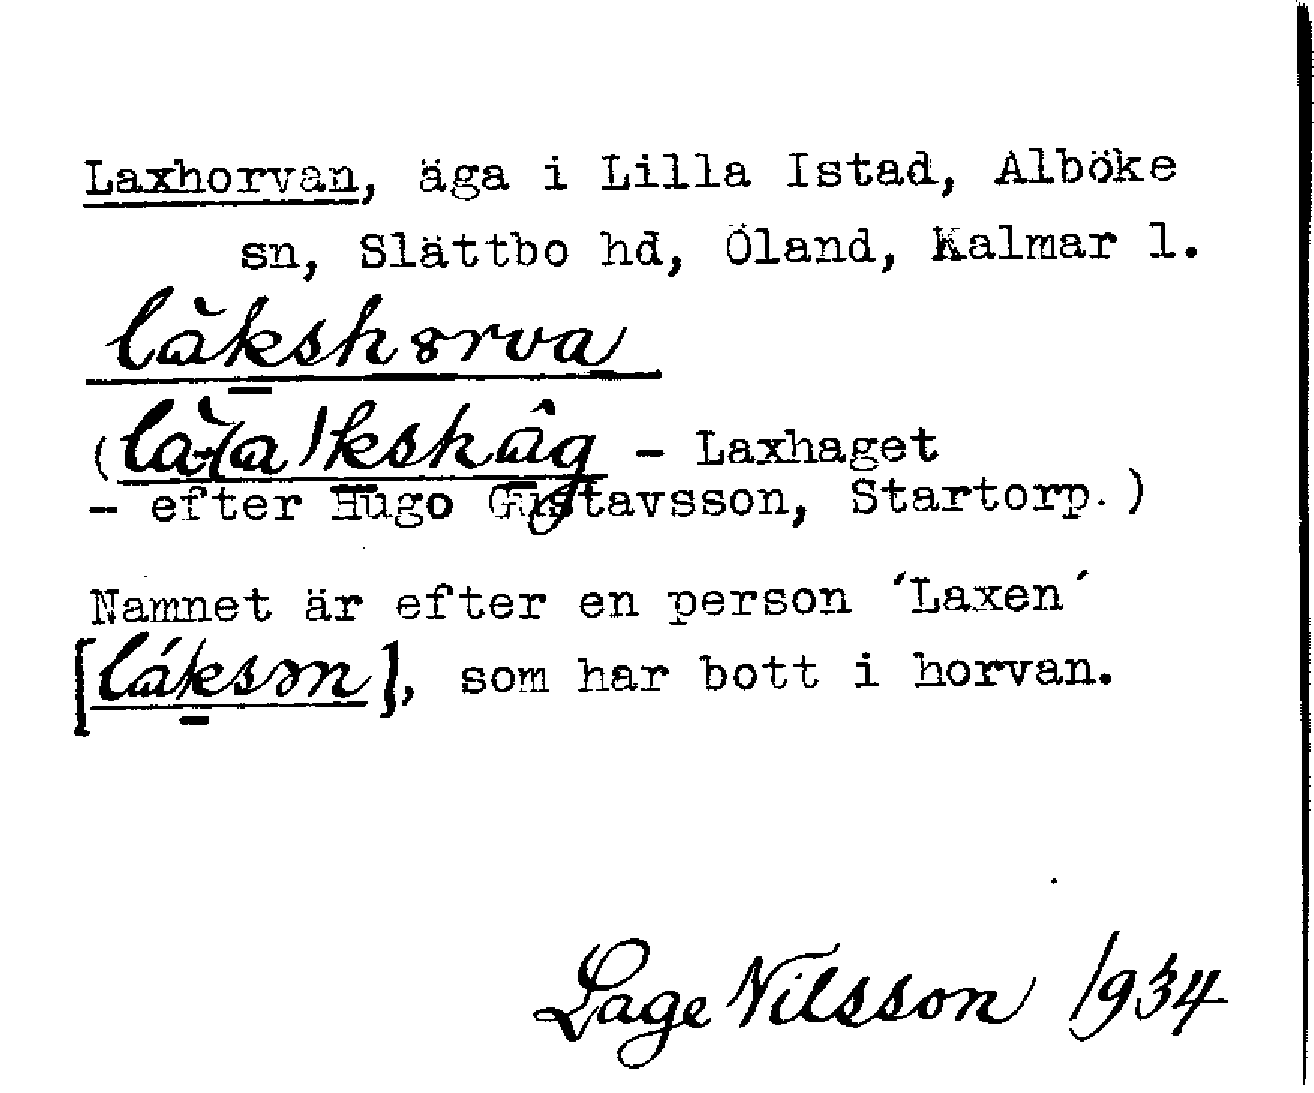 Laxhorvan, äga i Lilla Istad, Alböke
sn, Slättbo hd, Öland, Kalmar l.
làkshorva
(là-(a)kshâg - Laxhaget
- efter Hugo Gustavsson, Startorp.)
Namnet är efter en person ´Laxen´
[láksən], som har bott i horvan.
Lage Nilsson 1934